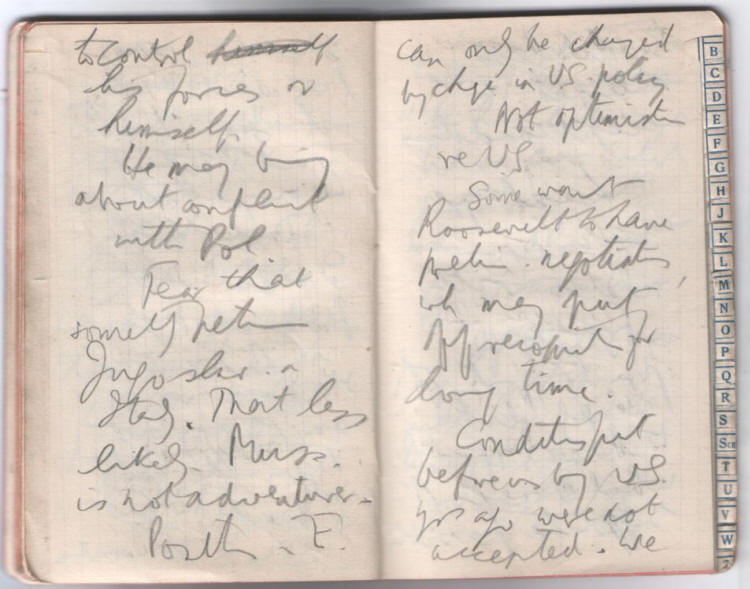 to control himself
his forces or
himself.
He may bring
about conflict
with Pol
Fear that
something between
Jugoslav. a
Italy. That less
likely. Muss.
is not adventurer -
Position. F.
can only be changed
by change in US. policy
Not optimistic
re US.
Some want
Roosevelt to have
prelim. negotiations,
wh may put
off recognit for
long time.
Condits put
before us by US.
yrs ago were not
accepted. We
B
C
D
E
F
G
H
J
K
L
M
N
O
P
Q
R
S
Sch
T
U
V
W
Z